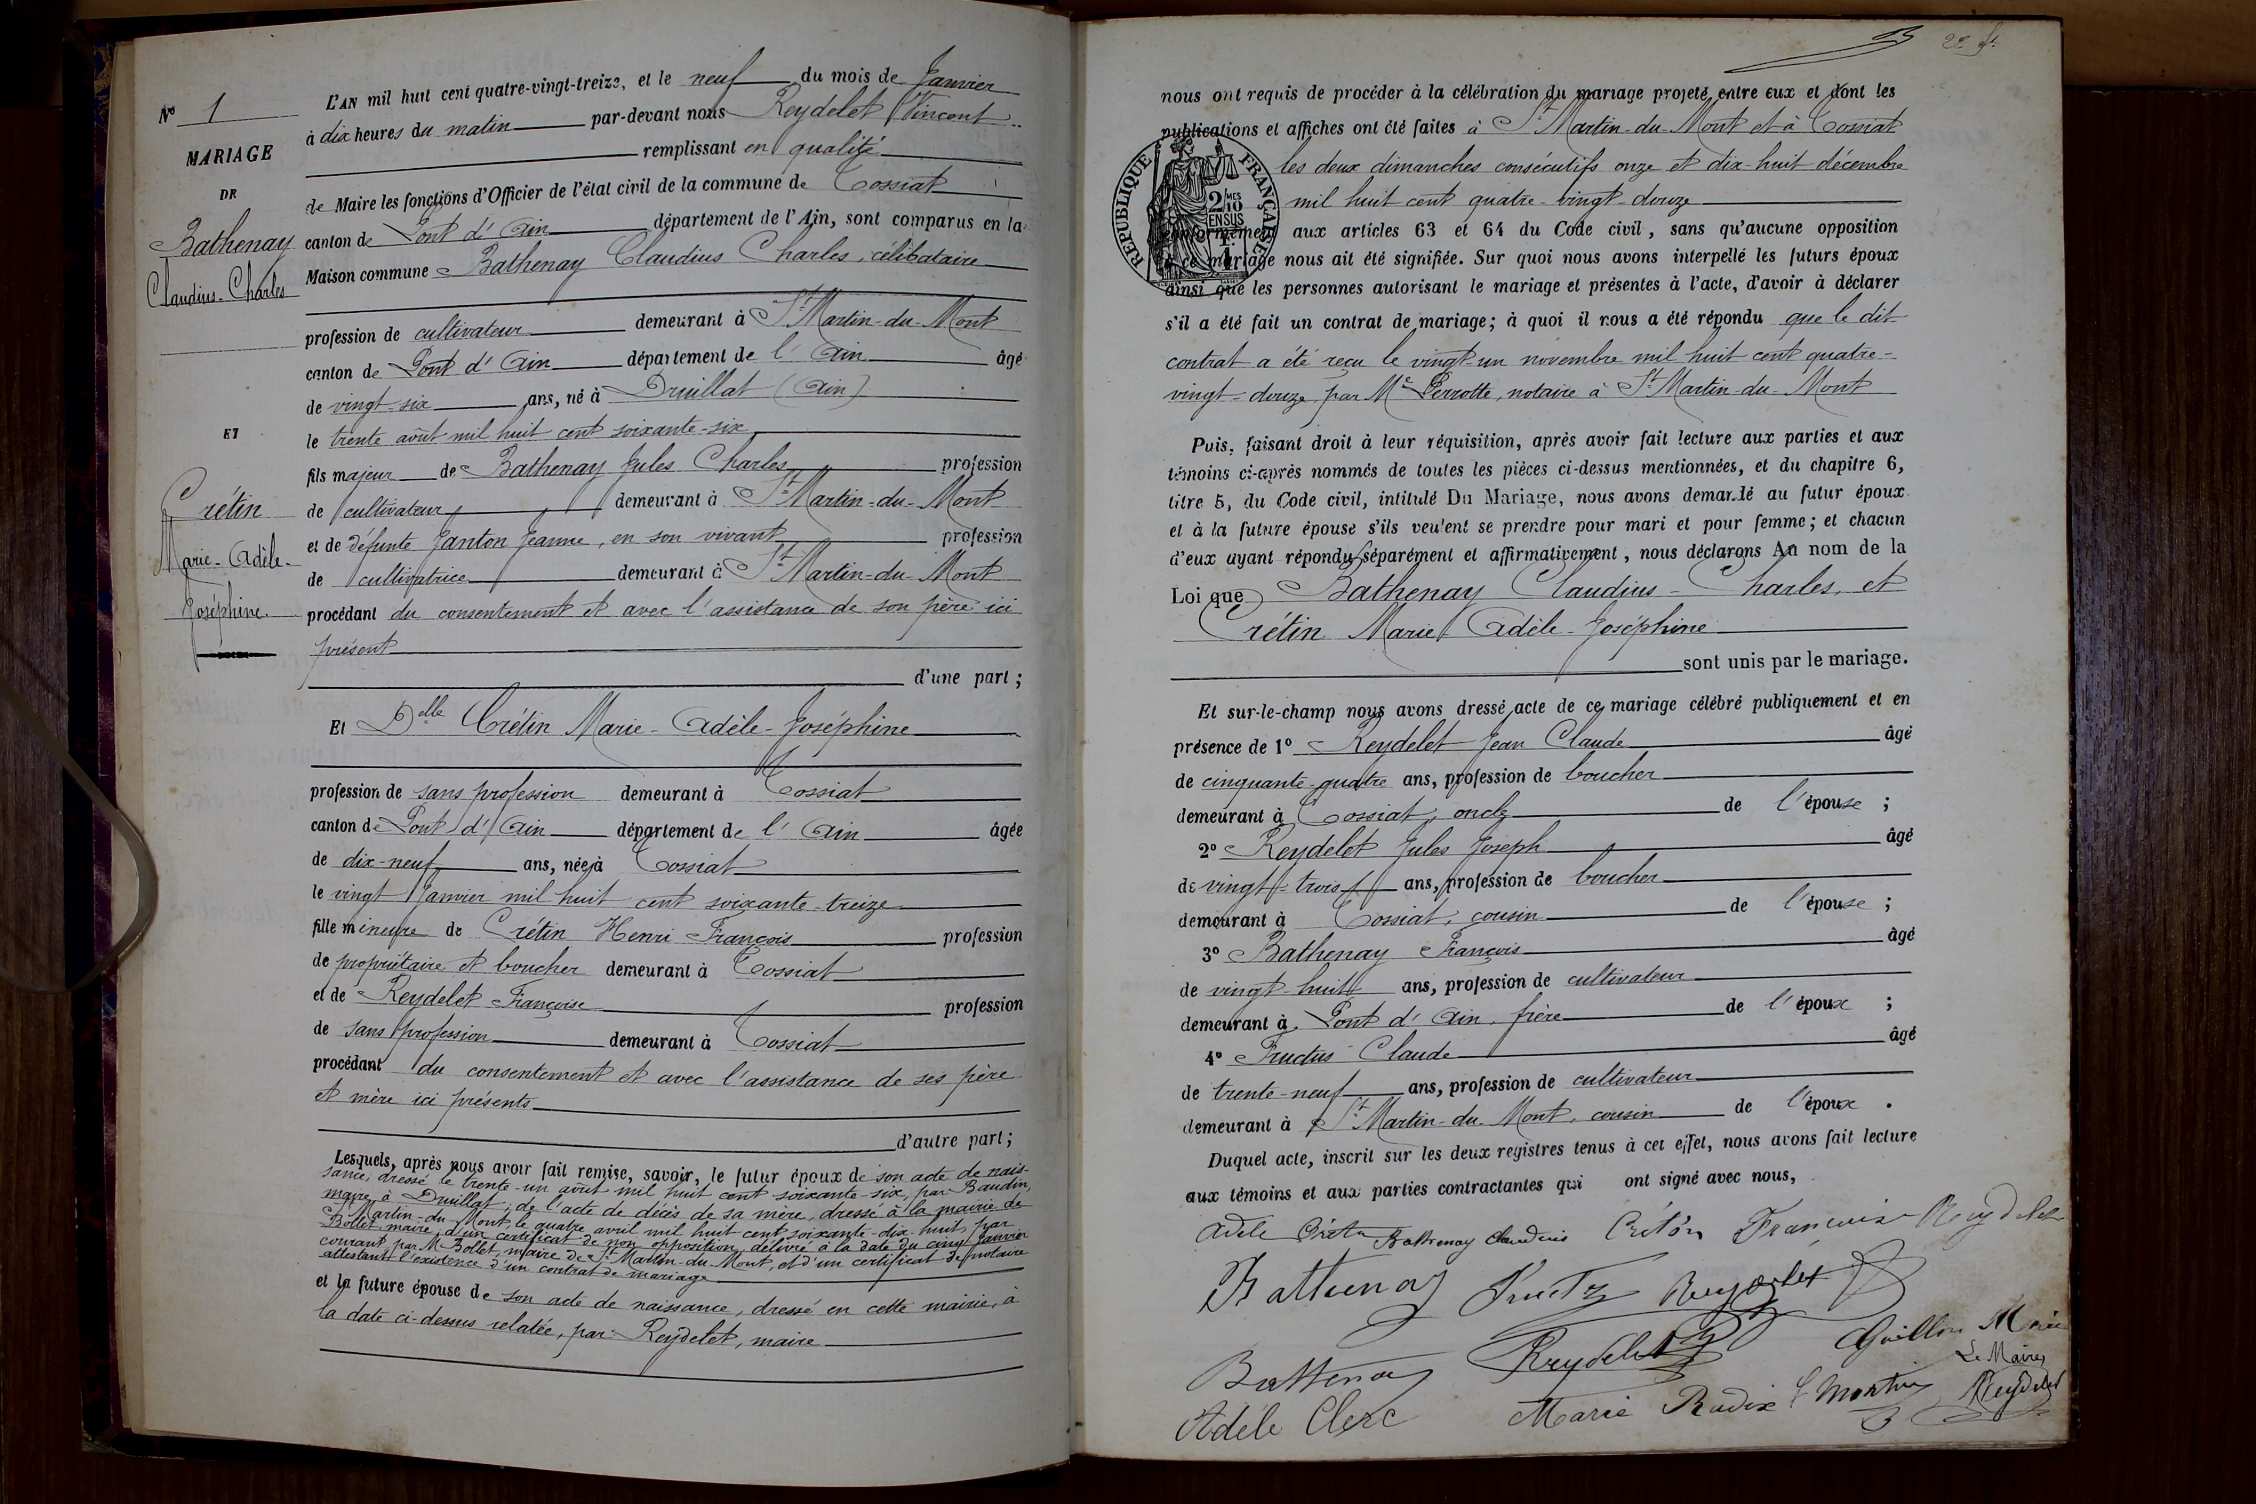 N° 1
MARIAGE
DE
Bathenay
Claudius-Charles
ET
Crétin
Marie-Adèle-
Joséphine
L'AN mil huit cent quatre-vingt-treize, et le neuf du mois de Janvier
à dix heures du matin par-devant nous Reydelet Vincent
remplissant en qualité
de Maire les fonctions d'Officier de l'état civil de la commune de Tossiat
canton de Pont d'Ain département de l'Ain, sont comparus en la
Maison commune Bathenay Claudius Charles, célibataire
profession de cultivateur demeurant à St Martin-du-Mont
canton de Pont d'Ain département de l'Ain âgé
de vingt-six ans, né à Druillat (Ain)
le trente août mil huit cent soixante-six
fils majeur de Bathenay Jules Charles profession
de cultivateur demeurant à St Martin-du-Mont
et de défunte Janton Jeanne, en son vivant profession
de cultivatrice demeurant à St Martin-du-Mont
procédant du consentement et avec l'assistance de son père ici
présent
d'une part ;
Et Delle Crétin Marie-Adèle-Joséphine
profession de sans profession demeurant à Tossiat
canton de Pont d'Ain département de l'Ain âgée
de dix-neuf ans, née à Tossiat
le vingt Janvier mil huit cent soixante-treize
fille mineure de Crétin Henri François profession
de propriétaire et boucher demeurant à Tossiat
et de Reydelet Françoise profession
de sans profession demeurant à Tossiat
procédant du consentement et avec l'assistance de ses père
et mère ici présents
d'autre part ;
Lesquels, après nous avoir fait remise, savoir, le futur époux de son acte de nais-
sance, dressé le trente-un août mil huit cent soixante-six, par Baudin,
maire à Druillat, de l'acte de décès de sa mère, dressé à la mairie de
St Martin-du-Mont le quatre avril mil huit cent soixante-dix-huit par
Bollet maire, d'un certificat de non opposition délivré à la date du cinq Janvier
courant par Mr Bollet, maire de St Martin-du-Mont, et d'un certificat de notaire
attestant l'existence d'un contrat de mariage
et la future épouse de son acte de naissance, dressé en cette mairie, à
la date ci-dessus relatée, par Reydelet, maire
nous ont requis de procéder à la célébration du mariage projeté entre eux et dont les
publications et affiches ont été faites à St Martin-du-Mont et à Tossiat
les deux dimanches consécutifs onze et dix-huit décembre
mil huit cent quatre-vingt-douze
REPUBLIQUE FRANÇAISE
2/10 EN SUS
conformément aux articles 63 et 64 du Code civil, sans qu'aucune opposition
à ce mariage nous ait été signifiée. Sur quoi nous avons interpellé les futurs époux
ainsi que les personnes autorisant le mariage et présentes à l'acte, d'avoir à déclarer
s'il a été fait un contrat de mariage; à quoi il nous a été répondu que le dit
contrat a été reçu le vingt-un novembre mil huit cent quatre-
vingt-douze par Me Perrotte, notaire à St Martin-du-Mont
Puis, faisant droit à leur réquisition, après avoir fait lecture aux parties et aux
témoins ci-après nommés de toutes les pièces ci-dessus mentionnées, et du chapitre 6,
titre 5, du Code civil, intitulé Du Mariage, nous avons demandé au futur époux
et à la future épouse s'ils veulent se prendre pour mari et pour femme; et chacun
d'eux ayant répondu séparément et affirmativement, nous déclarons Au nom de la
Loi que Bathenay Claudius-Charles, et
Crétin Marie-Adèle-Joséphine
sont unis par le mariage.
Et sur-le-champ nous avons dressé acte de ce mariage célébré publiquement et en
présence de 1° Reydelet Jean Claude âgé
de cinquante-quatre ans, profession de boucher
demeurant à Tossiat, oncle de l'épouse ;
2° Reydelet Jules Joseph âgé
de vingt-trois ans, profession de boucher
demeurant à Tossiat, cousin de l'épouse ;
3° Bathenay François âgé
de vingt-huit ans, profession de cultivateur
demeurant à Pont d'Ain, frère de l'époux ;
4° Fructus Claude âgé
de trente-neuf ans, profession de cultivateur
demeurant à St Martin-du-Mont, cousin de l'époux .
Duquel acte, inscrit sur les deux registres tenus à cet effet, nous avons fait lecture
aux témoins et aux parties contractantes qui ont signé avec nous,
Adèle Crétin Bathenay Claudius Crétin Françoise Reydelet
Bathenay Reydelet
Reydelet Guillon Marie
Le Maire
Adèle Clerc Marie Rudix Reydelet